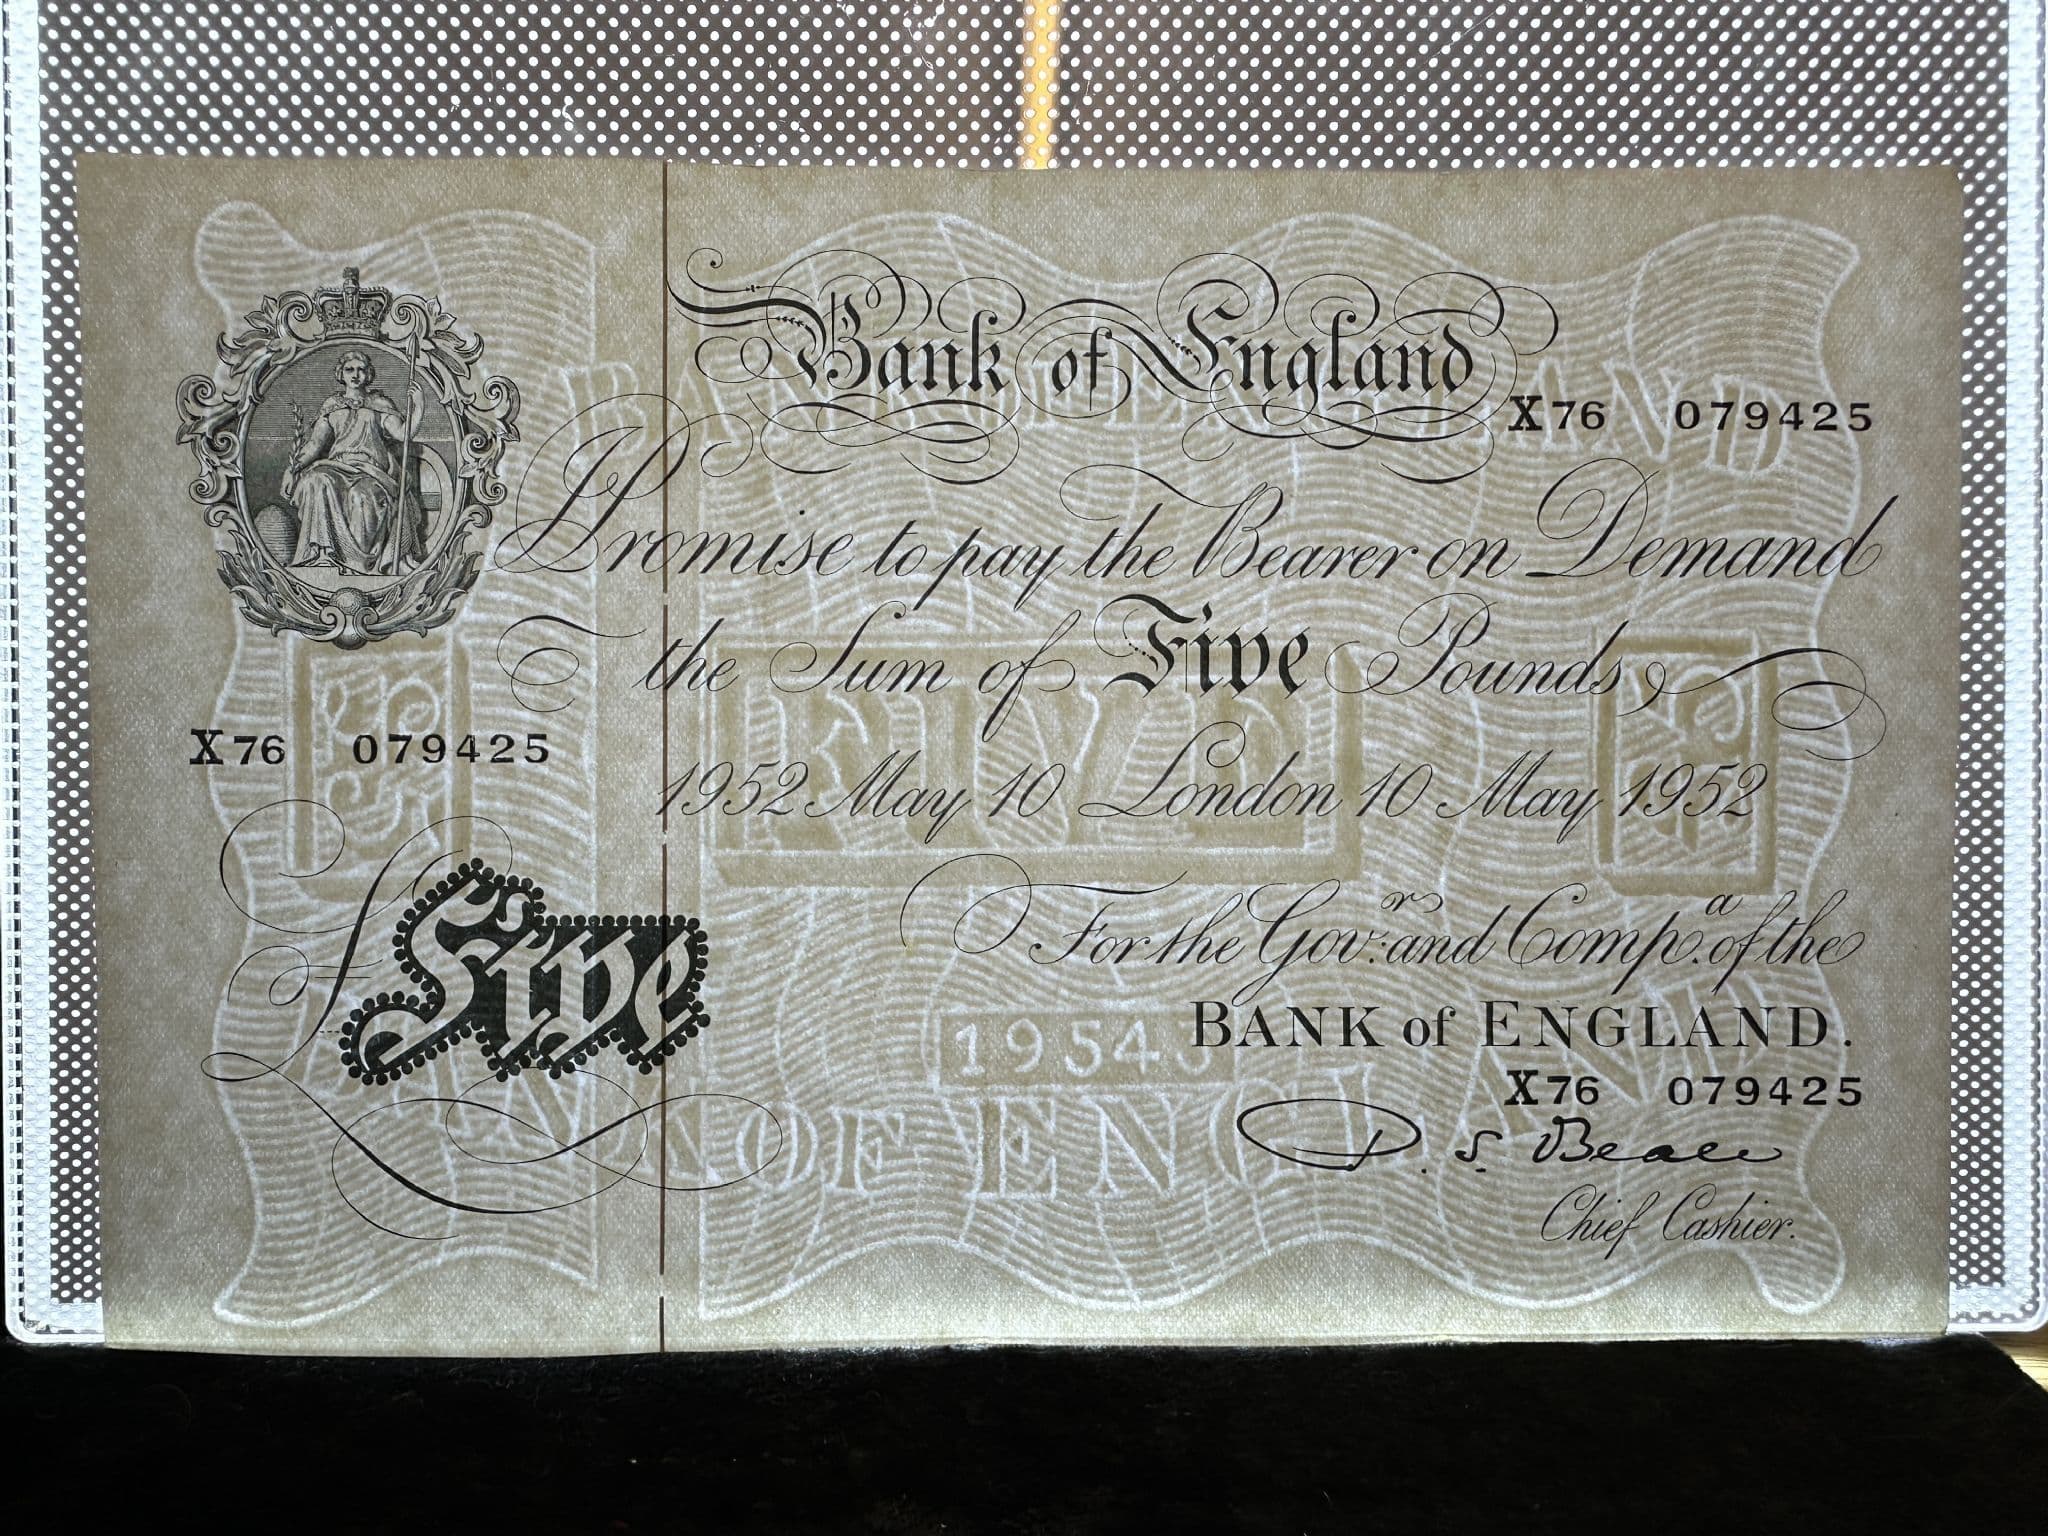 Bank of England
X76 079425
Promise to pay the Bearer on Demand
the Sum of Five Pounds
X76 079425
1952 May 10 London 10 May 1952
For the Gov.r and Comp.a of the
£ Five
BANK of ENGLAND.
X76 079425
D. S. Beale
Chief Cashier.
BANK OF ENGLAND
FIVE
1954
BANK OF ENGLAND